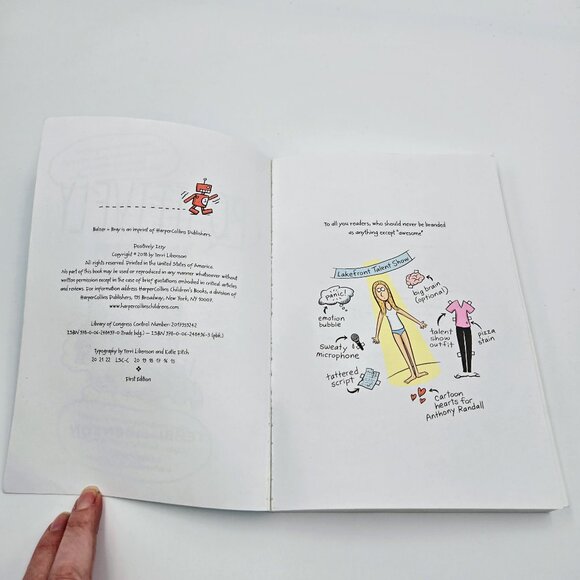 Balzer + Bray is an imprint of HarperCollins Publishers.
Positively Izzy
Copyright © 2018 by Terri Libenson
All rights reserved. Printed in the United States of America.
No part of this book may be used or reproduced in any manner whatsoever without
written permission except in the case of brief quotations embodied in critical articles
and reviews. For information address HarperCollins Children's Books, a division of
HarperCollins Publishers, 195 Broadway, New York, NY 10007.
www.harpercollinschildrens.com
Library of Congress Control Number:
Typography by Terri Libenson and Katie Fitch
First Edition
To all you readers, who should never be branded
as anything except "awesome"
Lakefront Talent Show
panic!
emotion
bubble
big brain
(optional)
sweaty
microphone
talent
show
outfit
pizza
stain
tattered
script
cartoon
hearts for
Anthony Randall